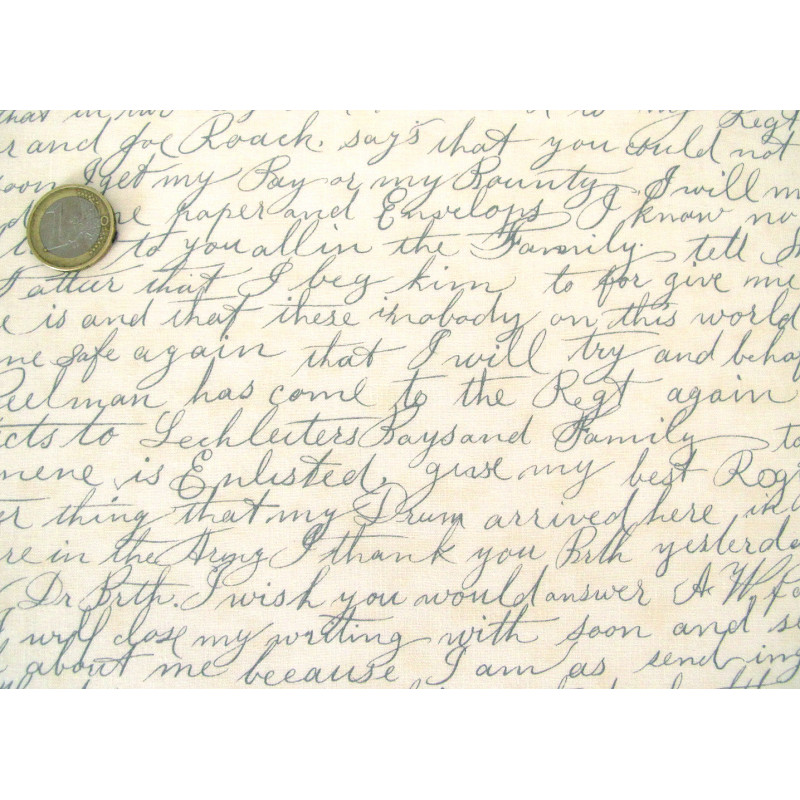 that in my Regt
r and Joe Roach. says that you could not
soon I get my Pay or my Bounty. I will m
paper and Envelops I know no
to you all in the Family. tell
Father that I beg him to for give me
e is and that there is nobody on this world
me safe again that I will try and behaf
Peelman has come to the Regt again
cts to Lechleiters Bays and Family to
mene is Enlisted, give my best Reg
er thing that my Drum arrived here in
re in the Army I thank you Brth yesterda
Dr Brth. I wish you would answer A. W.
I will close my writing with soon and se
about me beecause I am as sending